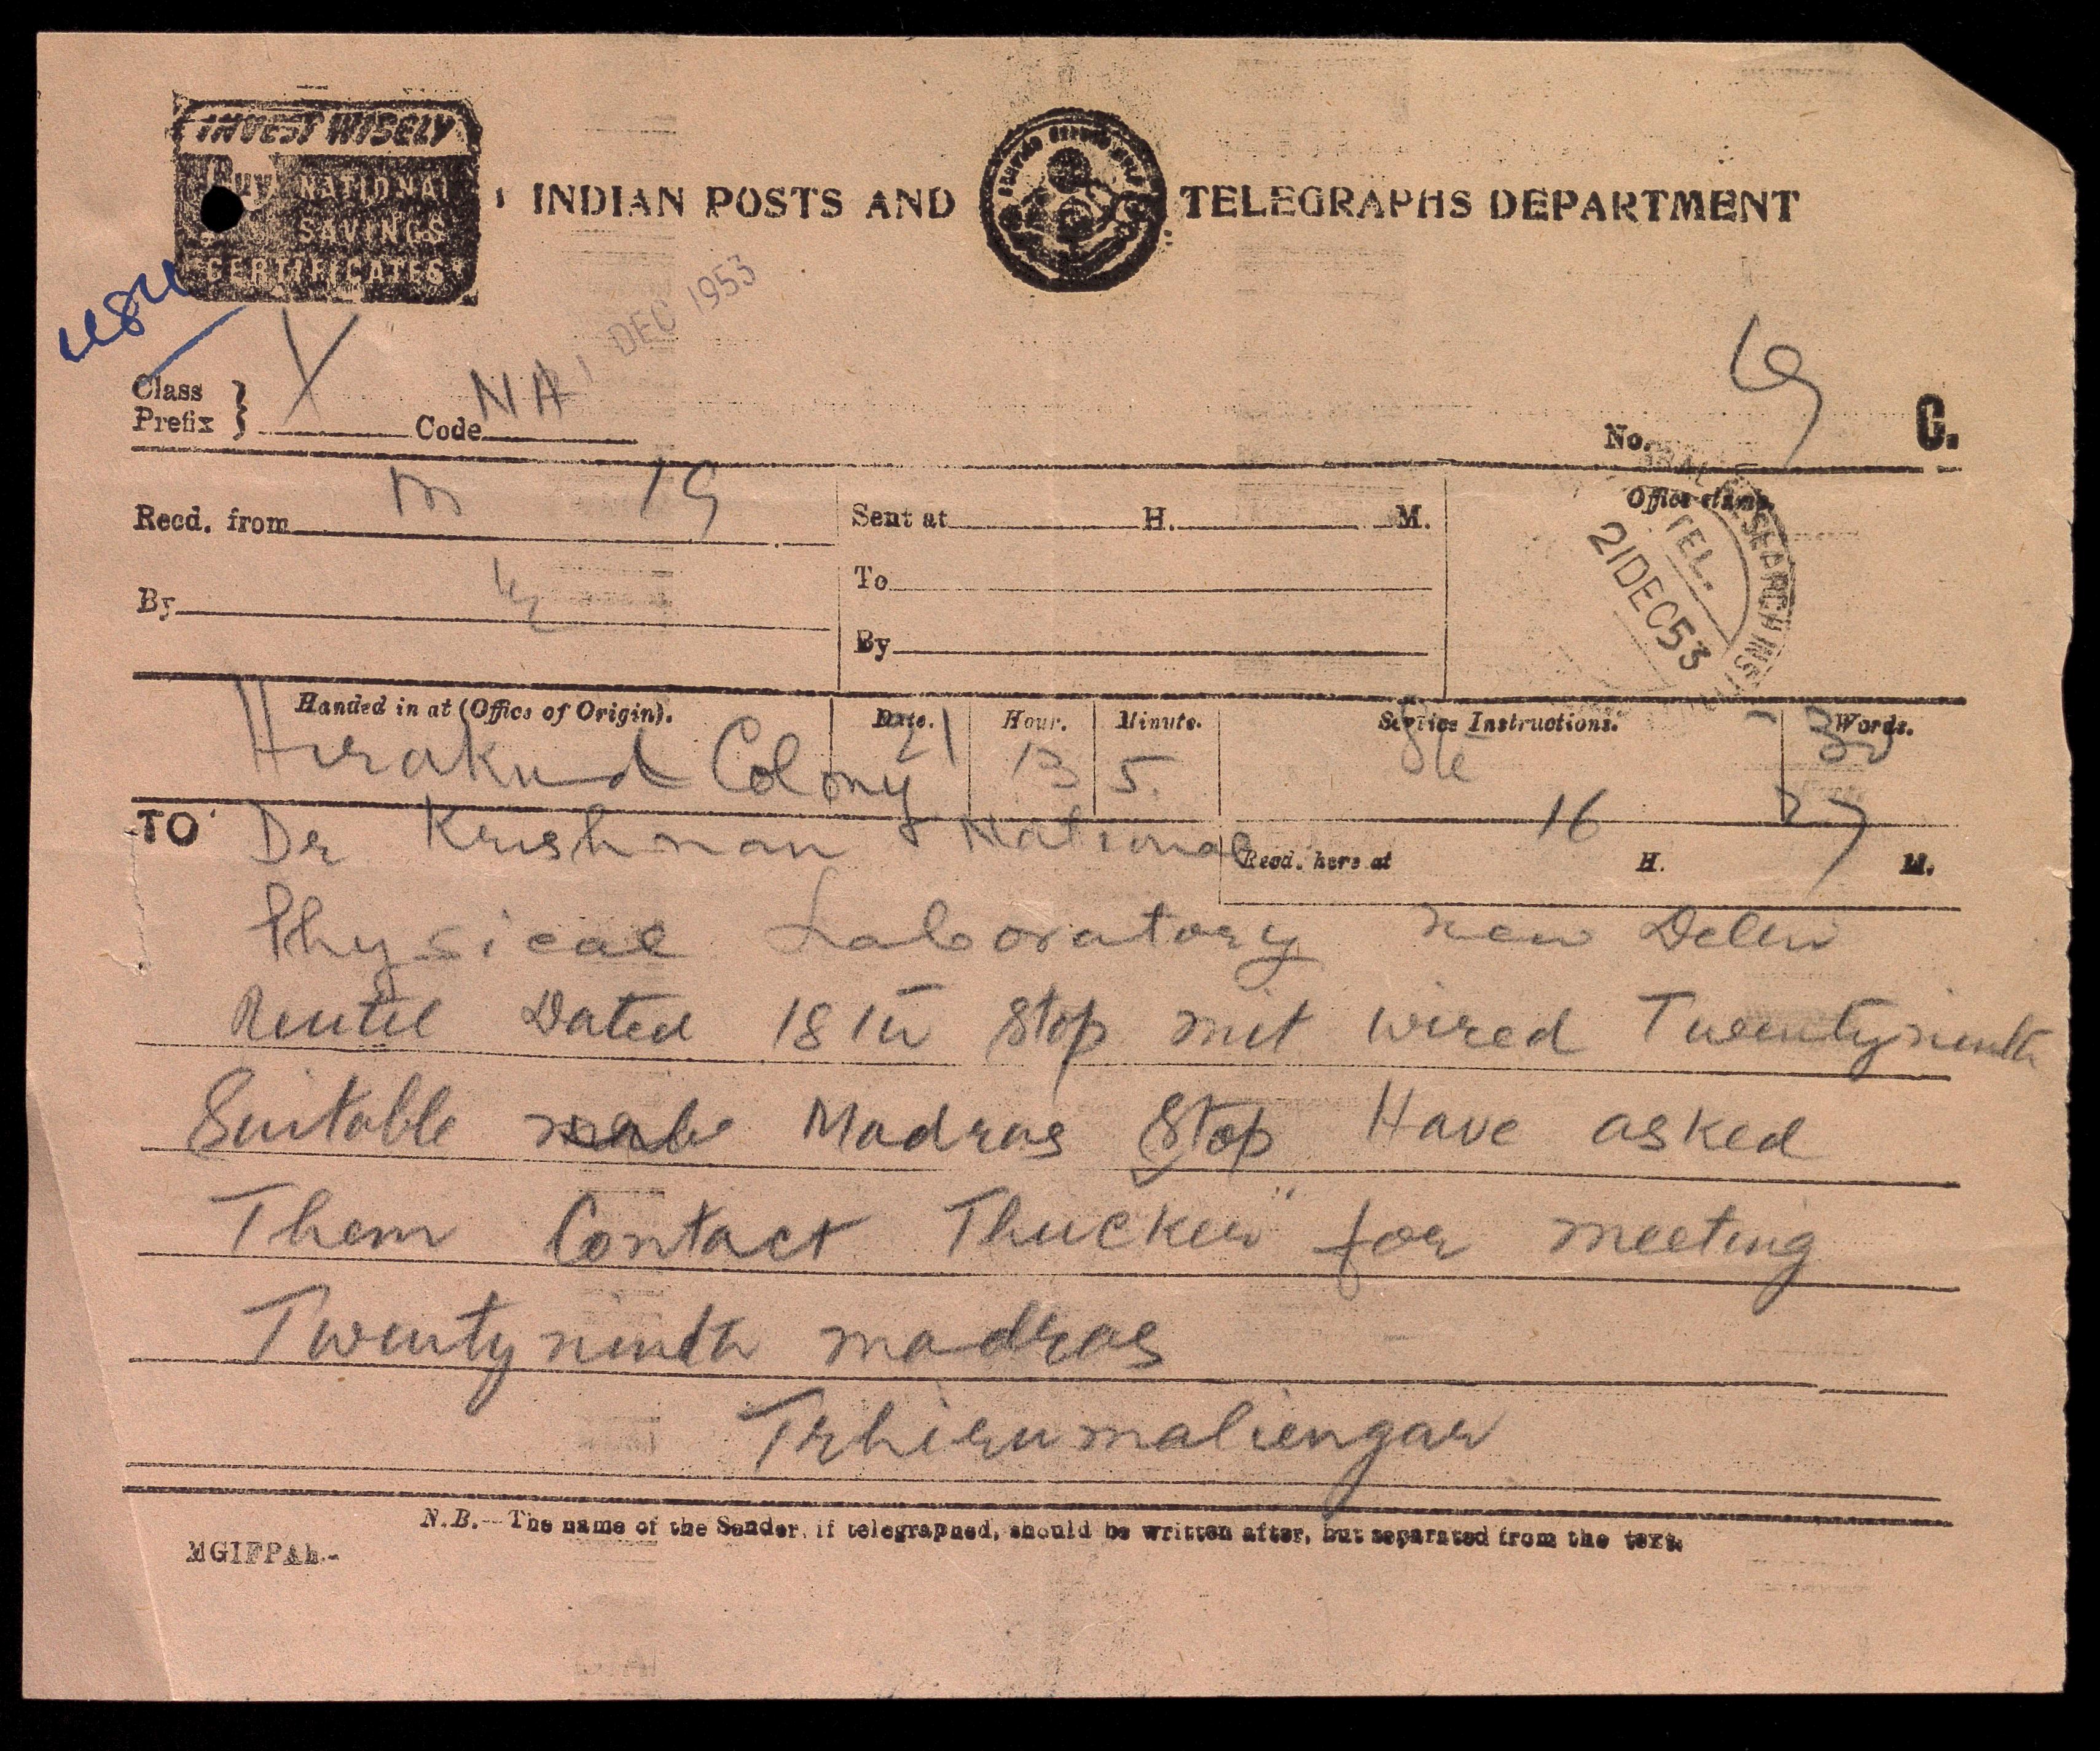 INVEST WISELY
Buy NATIONAL
SAVINGS
CERTIFICATES
INDIAN POSTS AND TELEGRAPHS DEPARTMENT
21 DEC 1953
Class
Prefix } X Code NA
No. C.
Recd. from m 19 Sent at H. M. Office stamp.
TEL.
21DEC53
RESEARCH INS
By To
By
Handed in at (Office of Origin). Date. Hour. Minute. Service Instructions. Words.
Hirakud Colony 21 13 5 Ste 30
TO Dr Krishnan National Recd. here at 16 H. 27 M.
Physical Laboratory new Delhi
Dated 18th Stop mit wired Twentyninth
Suitable Madras Stop Have asked
Them Contact Thucker for meeting
Twentyninth madras
Trhirumaliengar
N.B.—The name of the Sender, if telegraphed, should be written after, but separated from the text.
MGIFPAh.-